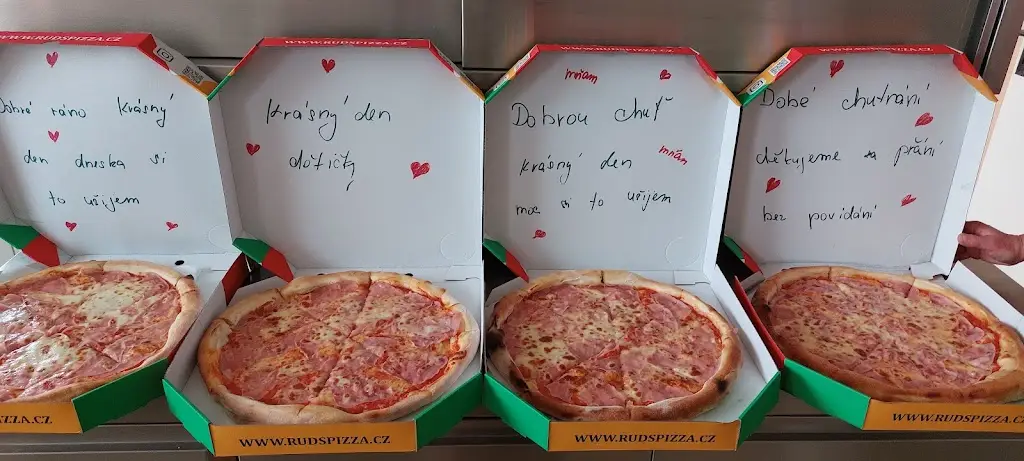 WWW.RUDSPIZZA.CZ
Dobré ráno krásný
den dneska si
to užijem
WWW.RUDSPIZZA.CZ
Krásný den
WWW.RUDSPIZZA.CZ
mňam
Dobrou chuť
krásný den mňam
moc si to užijem
Dobé chutnání
děkujeme za přání
bez povídání
ZZA.CZ
WWW.RUDSPIZZA.CZ
WWW.RUDSPIZZA.CZ
WWW.RUDSPIZZ